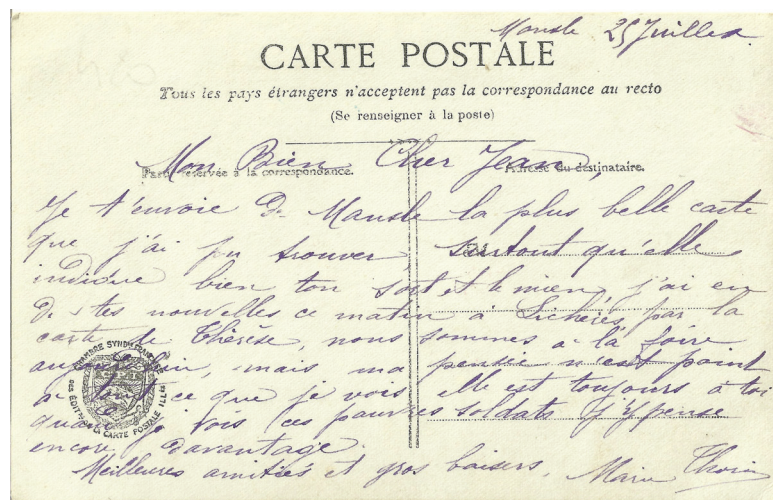 Mansle 25 Juillet
CARTE POSTALE
Tous les pays étrangers n'acceptent pas la correspondance au recto
(Se renseigner à la poste)
Mon Bien Cher Jean,
Partie réservée à la correspondance.
Adresse du destinataire.
Je t'envoie de Mansle la plus belle carte
que j'ai pu trouver, surtout qu'elle
indique bien ton sort et le mien, j'ai eu
de tes nouvelles ce matin à Lichères par la
carte de Thérèse, nous sommes à la foire
aujourd'hui, mais ma pensée n'est point
à tout ce que je vois elle est toujours à toi
quand je vois ces pauvres soldats j'y pense
encore davantage.
Meilleures amitiés et gros baisers, Marie
CHAMBRE SYNDICALE FRANÇAISE
DES ÉDITRS DE LA CARTE POSTALE ILLÉE